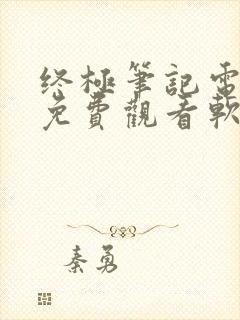 终極筆記電
免費觀看軟
秦勇